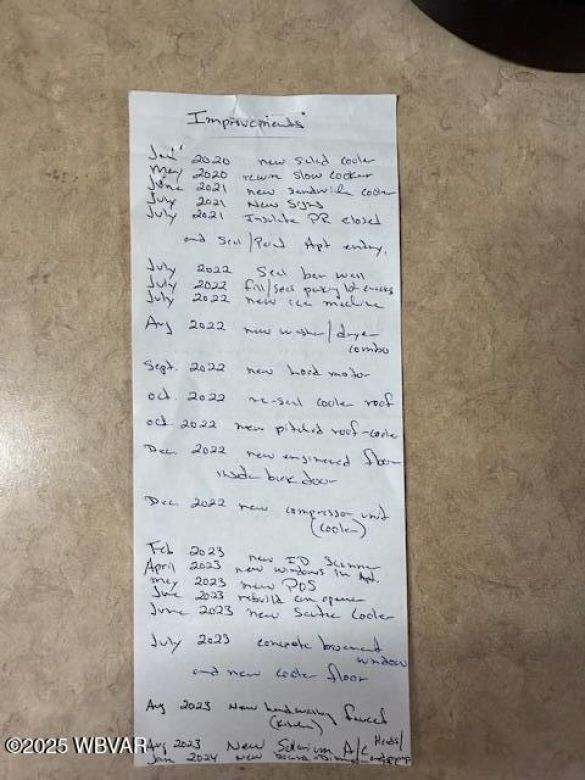 Improvements
Jan 2020 new salad cooler
May 2020 rewire slow cooker
June 2021 new sandwich cooler
July 2021 New Signs
July 2021 Insulate PR closed
and seal/ Apt entry,
July 2022 Seal bar wall
July 2022 fill/seal parking lot cracks
July 2022 new ice machine
Aug 2022 new washer/dryer
combo
Sept. 2022 new hood motor
oct. 2022 re-seal cooler roof
oct 2022 new pitched roof-cooler
Dec 2022 new engineered floor
inside back door
Dec 2022 new compressor unit
(cooler)
Feb 2023 new ID Scanner
April 2023 new windows in Apt.
may 2023 new POS
June 2023 rebuild can opener
June 2023 new cooler
July 2023 concrete basement
window
and new cooler floor
Aug 2023 New handwashing faucet
(kitchen)
Aug 2023 New A/C Heads/
Jan 2024 new
©2025 WBVAR